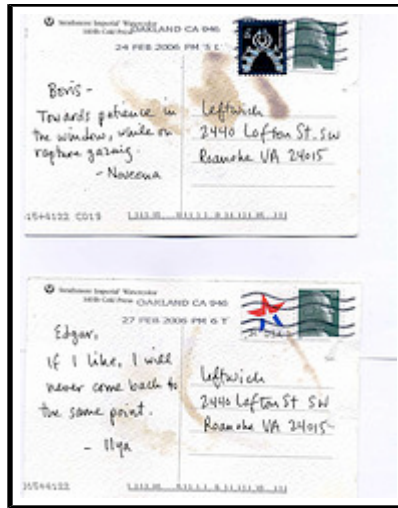 Strathmore Imperial Watercolor
140lb Cold Press OAKLAND CA 946
24 FEB 2006 PM 5 L
Boris -
Towards patience in
the window, while on
rapture gazing.
- Noveena
Leftwich
2440 Lofton St. SW
Roanoke VA 24015
15+4122 C019
Strathmore Imperial Watercolor
140lb Cold Press OAKLAND CA 946
27 FEB 2006 PM 6 T
Edgar,
If I like, I will
never come back to
the same point.
- Ilya
Leftwich
2440 Lofton St SW
Roanoke VA 24015